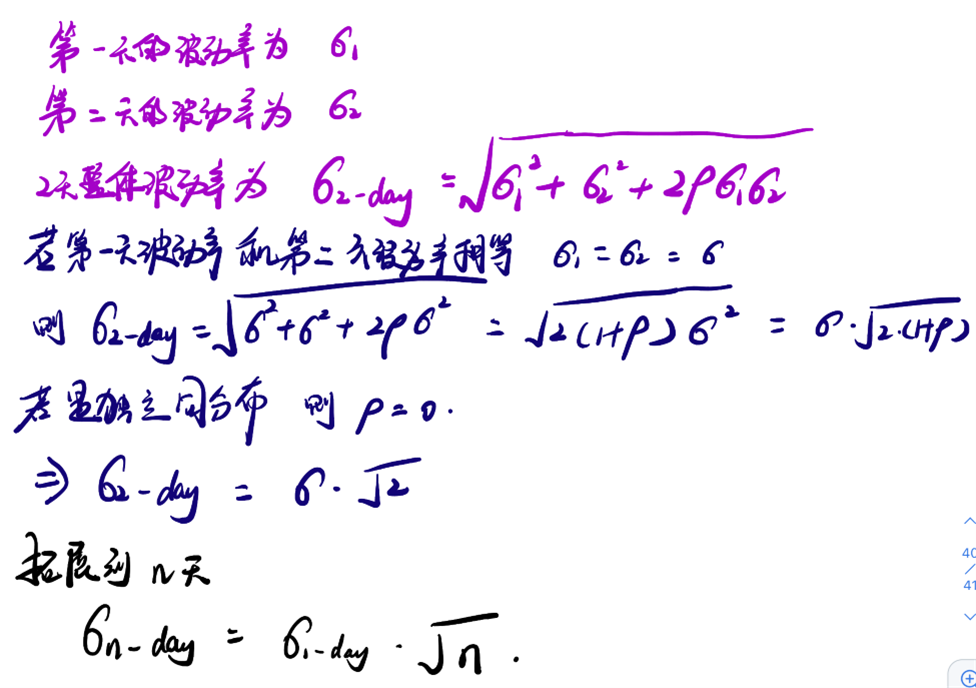 第一天的波动率为 σ₁
第二天的波动率为 σ₂
2天整体波动率为 σ₂₋day = √(σ₁² + σ₂² + 2ρσ₁σ₂)
若第一天波动率和第二天波动率相等 σ₁ = σ₂ = σ
则 σ₂₋day = √(σ² + σ² + 2ρσ²) = √(2(1+ρ)σ²) = σ·√(2·(1+ρ))
若是独立同分布 则 ρ = 0.
⇒ σ₂₋day = σ·√2
拓展到 n天
σn-day = σ₁₋day · √n .
40
/
41